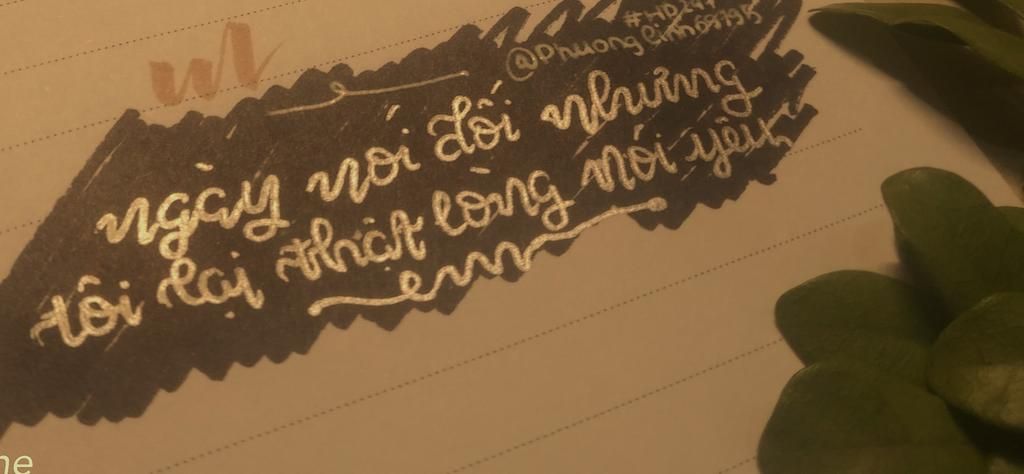 #HD247
@Phuonglinh681975
ngày nói dối nhưng
tôi lại thật lòng nói yêu
em